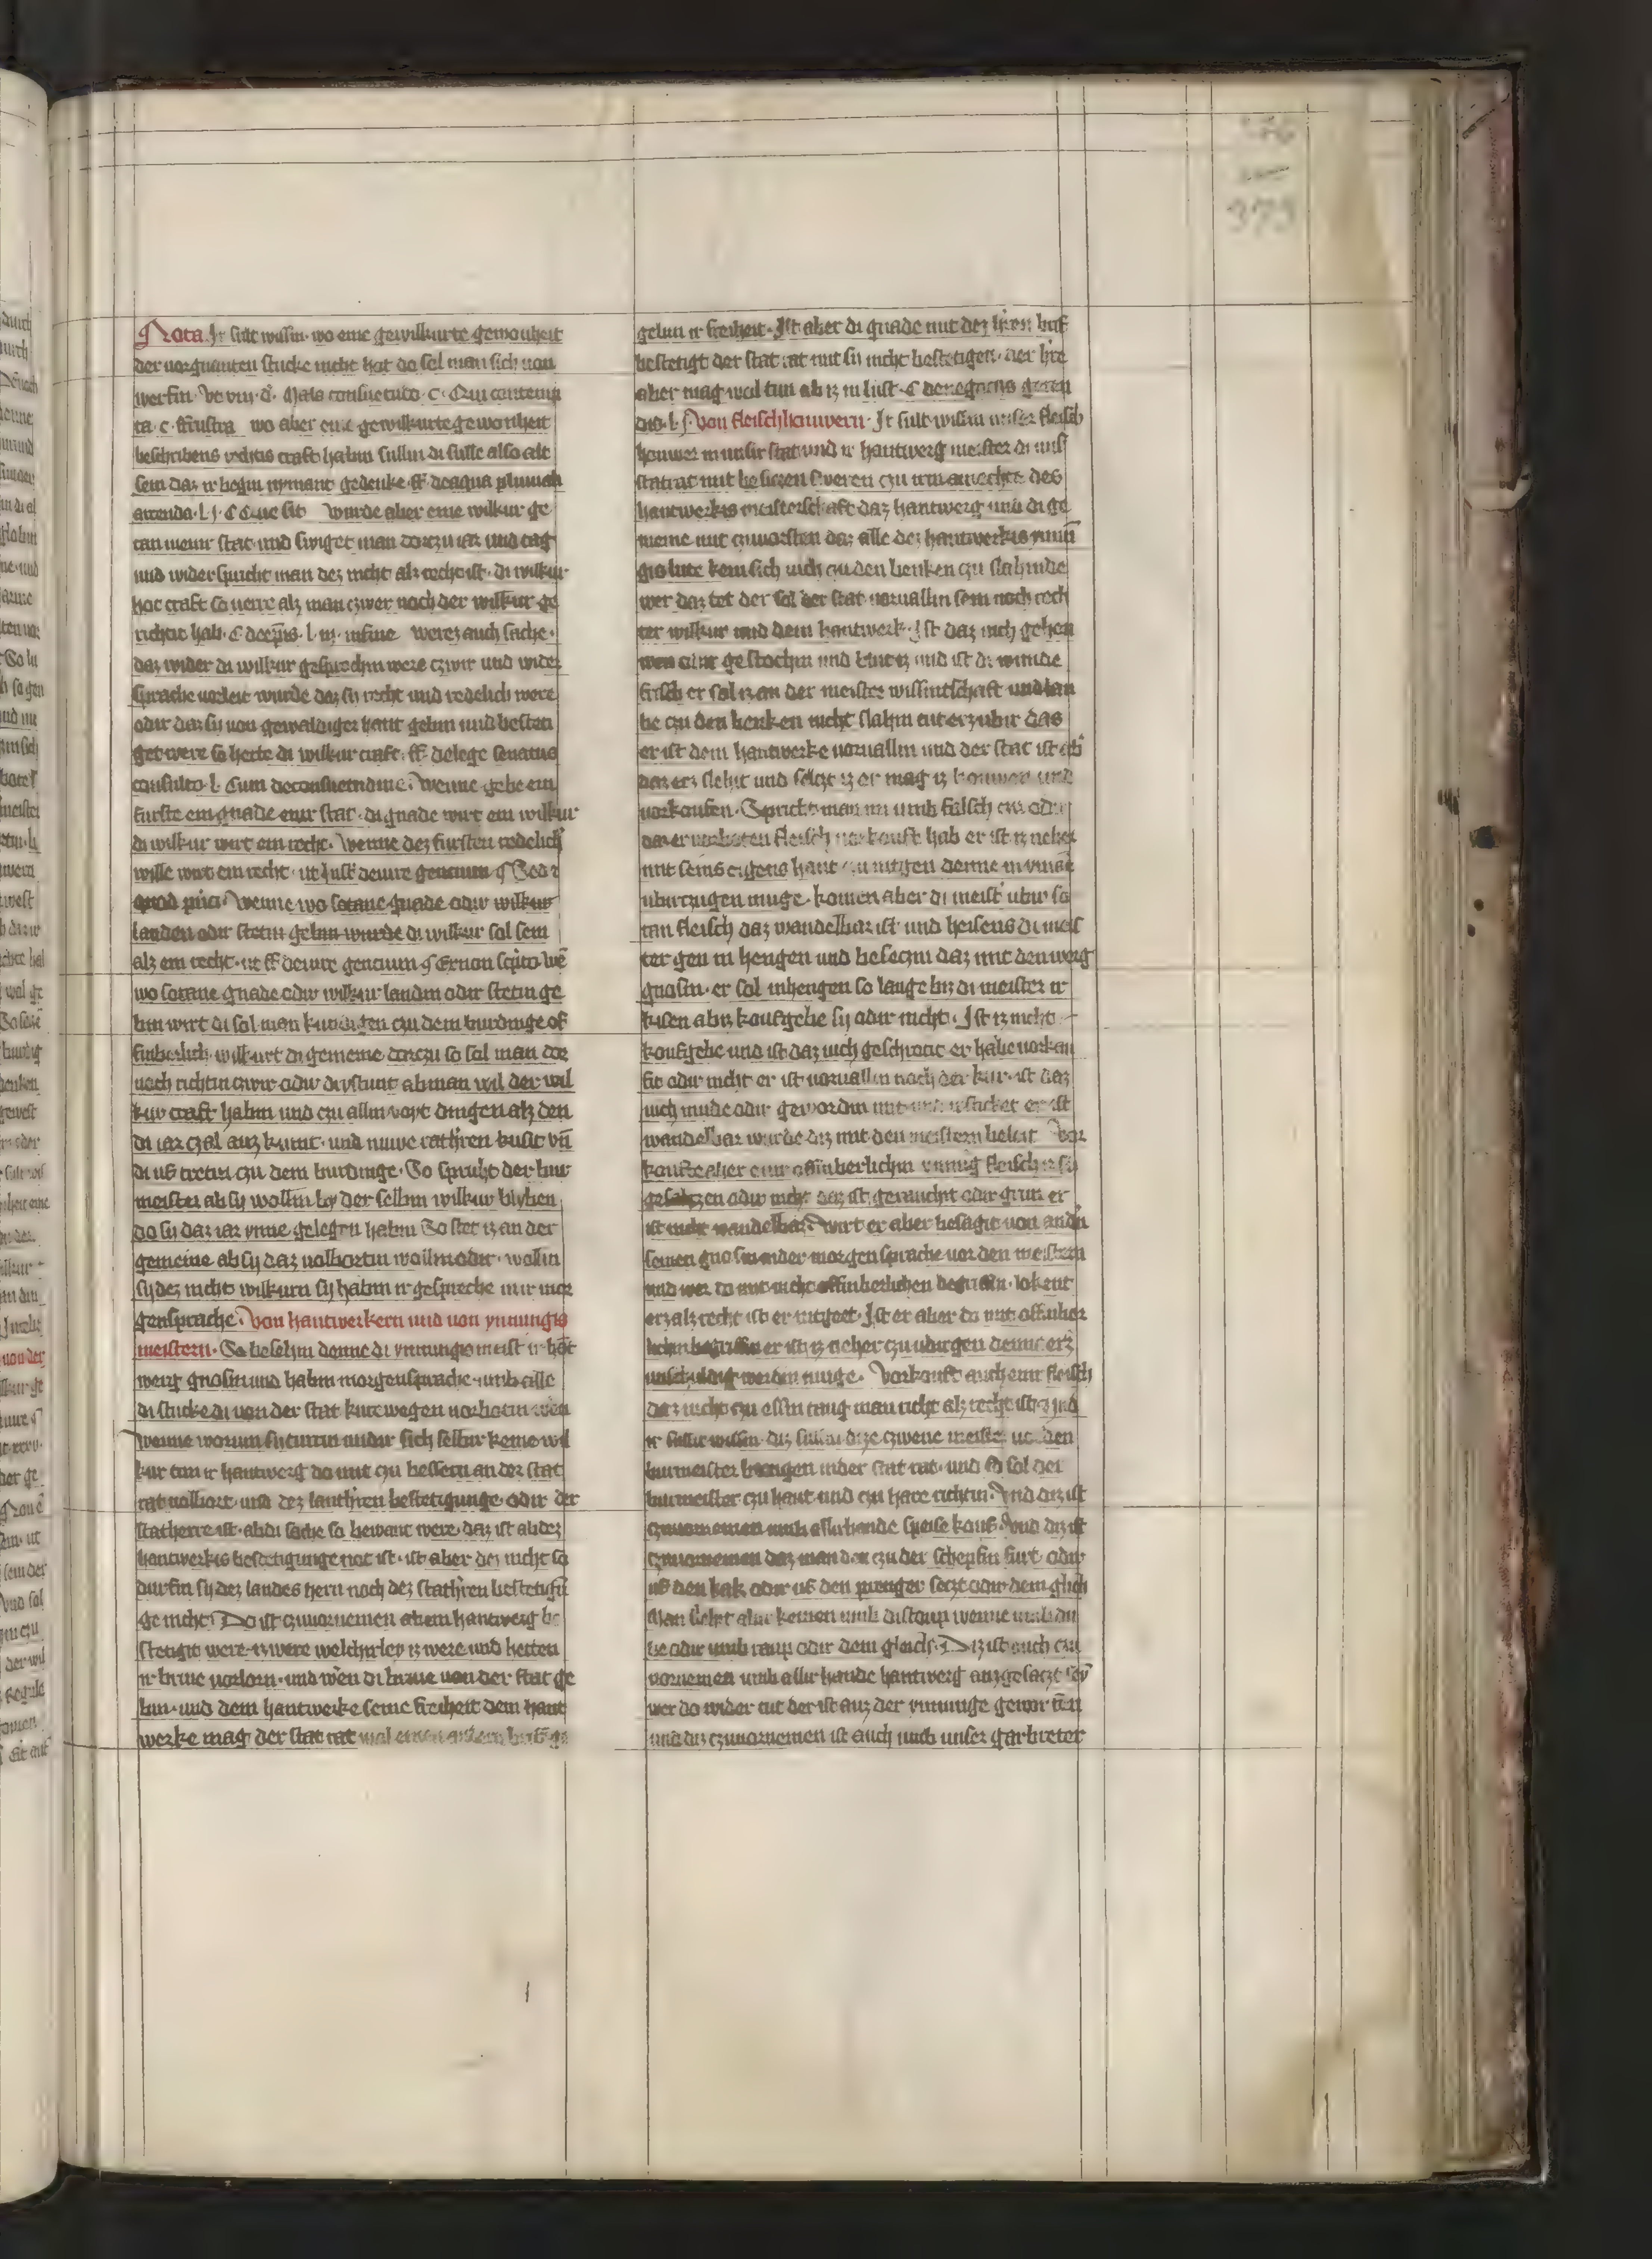 373
Nota Ir sult wissin. wo eine gewilkurte gewonheit
der vorgnanten stucke nicht hat do sol man sich von
werfin. Ve viii. d. Mala consuetudo. c. Qui contemp
ta. c. frustra wo aber eine gewilkurte gewonheit
beschribens rechtis craft habin sullin di sulle also alt
sein daz ir begin nymant gedenke. ff de aqua pluuiali
arcenda. l. j. wurde aber eine wilkur ge
tan in einir stat. und swiget man dorczu iar und tag
und widerspricht man dez nicht alz recht ist. di wilkur
hot craft so verre alz man czwer noch der wilkur ge
richtit hab. l. iii. in fine werez auch sache.
daz wider di wilkur gesprochin were czwir und wider
sprache vorleit wurde daz sy recht und redelich were
odir daz sy von gewaldiger hant gebin und besteti
get were so hette di wilkur craft. ff. de lege senatus
consulto. l. Cum de consuetudine. Wenne gebe ein
furste ein gnade einir stat. di gnade wirt ein wilkur
di wilkur wirt ein recht. Wenne dez fursten redelich
wille wirt ein recht. ut Inst. de iure gencium Sed
quod pri. Wenne wo sotane gnade odir wilkur
landen odir stetin gebin wurde di wilkur sol sein
alz ein recht. ut ff de iure gencium Et non scripto. we
wo sotane gnade odir wilkur landin odir stetin ge
bin wirt di sol man kundigen czu dem burdinge of
finberlich. wilkurt di gemeine dorczu so sol man dor
noch richtin czwir odir dristunt ab man wil der wil
kur craft habin und czu allin voyt dingen alz den
di iar czal auz kumt. und nuwe rathren kusit vn
di us tretin czu dem burdinge. So spricht der bur
meister ab sy wollin by der selbin wilkur blyben
do sy daz iar ynne gelegen habin So stet iz an der
gemeine ab sy daz volbortin wollin odir. wollin
sy dez nicht wilkurn sy habin ir gespreche in ir mor
gensprache. Von hantwerkern und von ynnungis
meistern. So beselin denne di ynnungis meist ir hot
werg gnosin und habin morgensprache umb alle
di stucke di von der stat kure wegen vorbotin wen
wenne worum sy turrin undir sich selbir keine wil
kur tun ir hantwerg do mit czu bessern an der stat
rat volbort. und dez lanthren bestetigunge. odir der
statherre ist. ab di sache so bewant were. daz ist ab dez
hantwerkis bestetigunge not ist. ist aber dez nicht so
durfin sy dez landes hern noch dez stathren bestetigu
ge nicht. Do ist czuvornemen ab ein hantwerg be
stetigit were. iz were welchirley iz were und hetten
ir brive vorlorn. und wen di brive von der stat ge
bin. und dem hantwerke seine freiheit dem hant
werke mag der stat rat wol einen andern brif ge
gebin ir freiheit. Ist aber di gnade mit dez hren brif
bestetigt der stat rat mit sy nicht bestetigen. der hre
aber mag wol tun ab iz in lust.
Von fleischhauwern. Ir sult wissin unser fleisch
houwer in unsir stat und ir hantwerg meister di mus
statrat mit besiczen sweren czu irm amechte des
hantwerkis meisterschaft daz hantwerg und di ge
meine mit czuvorsten daz alle dez hantwerkis ynnu
gis lute kein sich vich czu den benken czu slahinde
wer daz tet der sol der stat vorvallin sein noch rech
ter wilkur und dem hantwerk. Ist daz vich gehou
wen odir gestochin und hinct iz und ist di wunde
frisch er sol iz an der meister wissintschaft und lau
be czu den benken nicht slahin tut erz ubir das
er ist dem hantwerke vorvallin und der stat ist ab
daz erz slehit und selczt iz er mag iz houwen und
vorkoufen. Spricht man im umb falsch ew odir
daz er vorboten fleisch vorkouft hab er ist iz neher
mit seins eigens hant denne in ymant
ubirczugen muge. komen aber di meist ubir so
tan fleisch daz wandelbar ist und heisens di meis
ter gen in hengen und besecziu daz mit den werg
gnosin. er sol inhengen so lange biz di meister ir
kisen ab iz koufgebe sy odir nicht. Ist iz nicht
koufgebe und ist daz vich geschrotit er habe vorkou
fit odir nicht er ist vorvallin noch der kur. ist daz
vich mude odir gewordin er ist
wandelbar wurde diz mit den meistern beleit Vor
koufte aber eine offinberlichin ynnig fleisch iz sy
gesalczen odir nicht daz ist geraucht odir grun er
ist nicht wandelbar. Wirt er aber besagit von andn
seinen gnosin in der morgensprache vor den meistern
und wer do mit nicht offinberlichen begriffin. lokent
erz alz recht ist er entgeet. Ist er aber do mit offinber
lichin begriffin er ist iz neher czu ubirgen denne erz
unschuldig werden muge. Vorkouft auch eine fleisch
daz nicht czu essin taug man richt alz recht ist. Und
ir sullit wissin. diz sullin dize czwene meister vor den
burmeister brengen in der stat rat. und so sol der
burmeister czu hant und czu hare richtin. Und diz ist
czuvornemen umb allirhande speise kouf. Und diz ist
czuvornemen daz man den czu der schepfin furt odir
us den kak odir us den prenger seczt odir dem glich
Man slehit abir keinen umb di stoup wenne umb du
be odir umb raup odir dem gleich. Diz ist auch czu
vornemen umb allir hande hantwerg auzgesaczt sey
wer do wider tut der ist auz der ynnunge geworfen
und diz czuvornemen ist auch umb unser garbreter